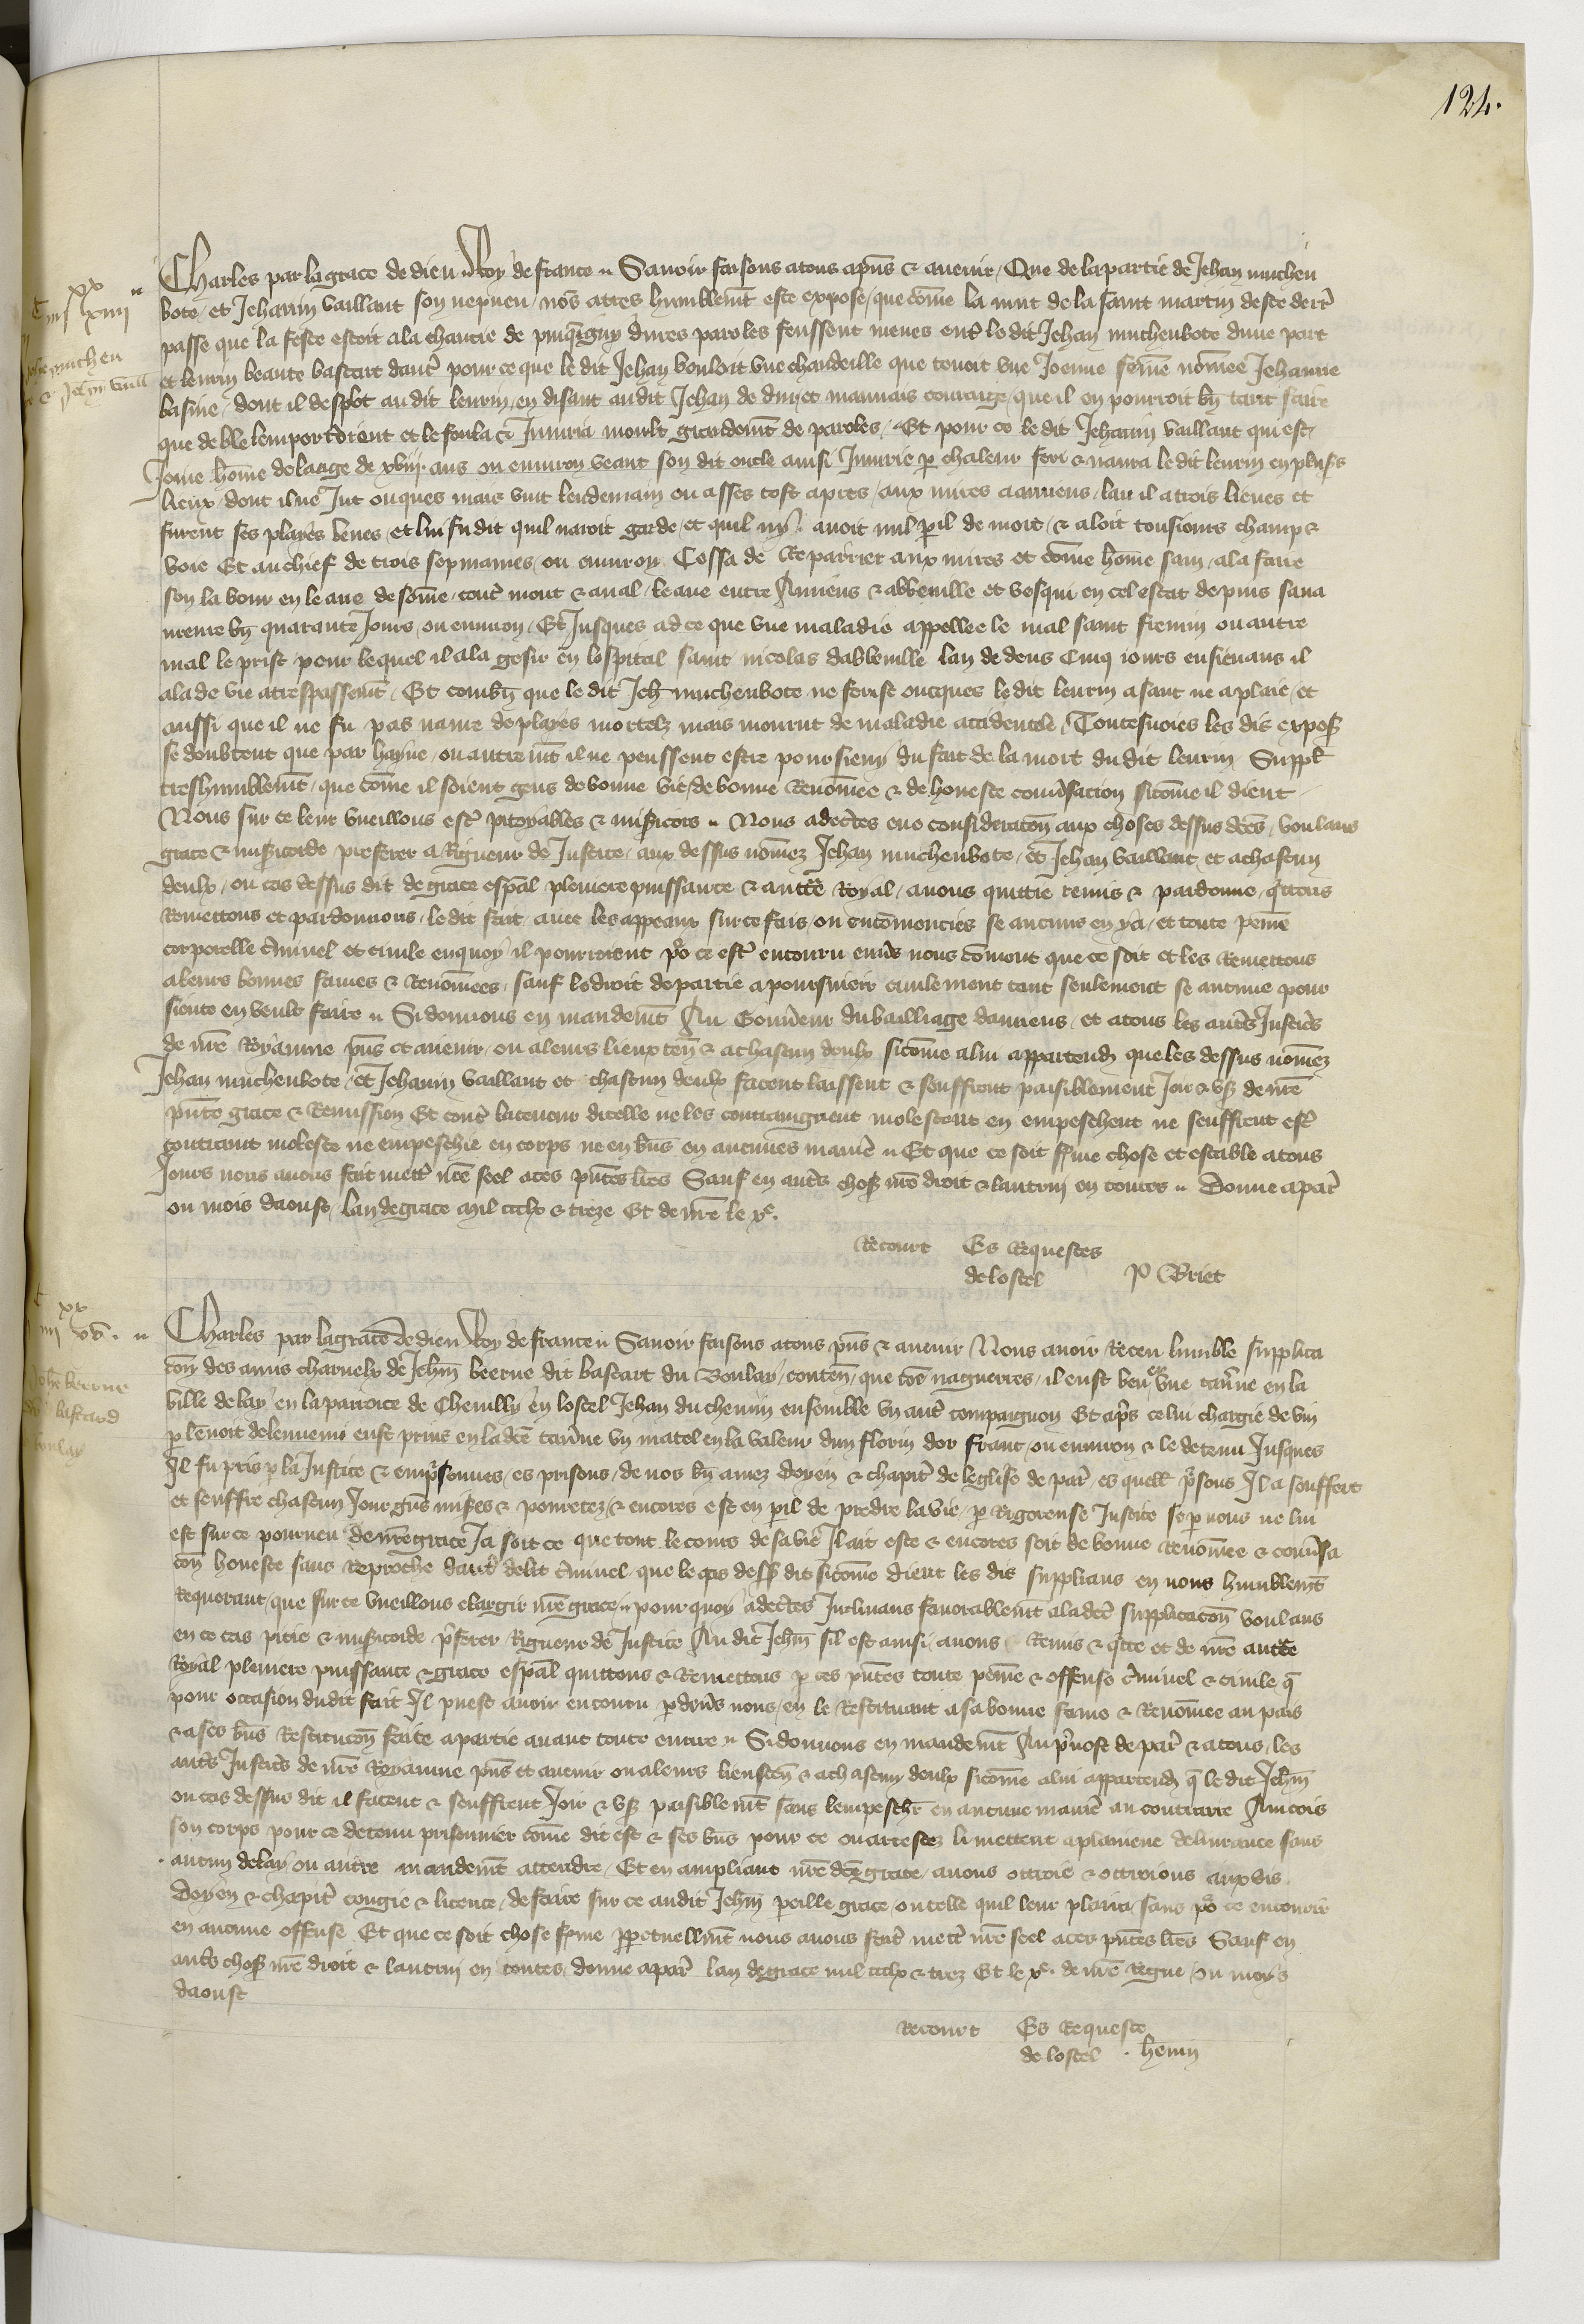 124.
Charles par la grace de dieu Roy de france Savoir faisons a tous apn̄s & avenir Que de la partie de Jehan muchen
bote et Jehanin vaillant son nepveu nos̄ a tres humblemt̄ este expose que com̄e la nuit de la saint martin deste dert̄
passe que la feste estoit a la chaucie de pinq̄gny dures paroles feussent meues ent̄ le dit Jehan muchenbote dune part
et leurin beaute bastart daut̄ pour ce que le dit Jehan vouloit une chandeille que tenoit une Joenne fem̄e nom̄ee Jehanne
basine dont il desplot au dit leurin en disant au dit Jehan de dur et mauvais couraige que il en pourroit bn̄ tant faire
que de ble lemporteroient et le foula & Jniuria moult grandemt̄ de paroles Et pour ce le dit Jehanin vaillant qui est
Jone hom̄e de laage de xviij. ans ou environ veant son dit oncle ainsi Jniurie p chaleur feri & navra le dit leurin en plus̄s
lieux dont il ne Jut onques mais vint lendemain ou asses tost apres aux mires a amiens lau il a trois lieues et
furent ses playes veues et lui fu dit quil navoit garde et quil ny avoit nul pil de mort & aloit tousiours champ &
voie Et au chief de trois sepmaines ou environ Cessa de Repairier aux mires et com̄e hom̄e sain ala faire
son labour en le aue de som̄e cont̄ mont & aval leaue entre Amiens & abbeville et vesqui en cel estat depuis sana
urente bn̄ quarante Jours ou environ Et Jusques ad ce que une maladie appellee le mal saint fremin ou autre
mal le prist pour lequel il ala gesir en lospital saint nicolas dabbeville lau dedens Cinq iours ensievans il
ala de vie a trespassemt̄ Et combn̄ que le dit Jeh̄ muchenbote ne ferist oncques le dit leurin a sanc ne a plaie et
aussi que il ne fu pas navre de playes mortelz mais mourut de maladie accidentele Toutesuoies les dis expos̄
se doubtent que par hayne ou autremt̄ il ne peussent estre poursieuy du fait de la mort du dit leurin Suppl̄
treshumblemt̄ que com̄e il soient gens de bonne vie de bonne Renom̄ee & de honeste conv̄sacion sicom̄e il dient
Nous sur ce leur vueillons est̄ pitoyables & mis̄icors Nous adectes eue consideracōn aux choses dessus dc̄es voulans
grace & mis̄icorde preferer a Rigueur de Justice aux dessus nom̄ez Jehan muchenbote et Jehan vaillant et a chascun
deulx ou cas dessus dit de grace esp̄al pleniere puissance & auctē Royal avons quittie remis & pardonne q̄ttons
Remettons et pardonnons le dit fait avec les appeaux sur ce fais ou encōmencies se aucuns en ya et toute peine
corporelle c̄minel et civile en quoy il pourroient po ce est̄ encouru env̄s nous com̄ent que ce soit et les Remettons
a leurs bonnes fames & Renom̄ees sauf le droit de partie a poursuieir civilement tant seulement se aucune pour
siente en veult faire Si donnons en mandemt̄ Au Gouv̄neur du bailliage damiens et a tous les aut̄s Justic̄s
de nr̄e Royaume pn̄s et avenir ou a leurs lieux ten̄ & a chascun deulx sicom̄e a lui appartendr̄ que les dessus nom̄ez
Jehan muchenbote et Jehanin vaillant et chascun deulx facent laissent & seuffrent paisiblement Joir & us̄ de nr̄e
pn̄te grace & Remission Et cont̄ la teneur dicelle ne les contraignent molestent en empeschent ne seuffrent est̄
contraint moleste ne empeschie en corps ne en bn̄s en aucunes manie Et que ce soit fme chose et estable a tous
Jours nous avons fait mett̄ nr̄e seel a ces pn̄tes lr̄es Sauf en aut̄s chos̄ nr̄e droit & lautruy en toutes Donne a par̄
ou mois daoust lan de grace mil ccclx & treze Et de nr̄e le xe.
Recourt Es Requestes
de lostel P Briet
Charles par la grace de dieu Roy de france Savoir faisons a tous pn̄s & avenir Nous avoir Receu lumble supplica
cōn des amis charnelx de Jeh̄n beerne dit bastart du Boulay conten̄ que cōe naguerres il eust beu en une tav̄ne en la
ville de lay en la parroice de Chevilly en lostel Jehan du chemin ensemble un aut̄ compaignon Et ap̄s ce lui chargie de vin
p lenoit de lennemi eust prins en la dc̄e tav̄ne un mātel en la valeur dun florin dor franc ou environ & le detenu Jusques
Il fu pris p la Justice & emp̄sonnes es prisons de nos bn̄ amez doyen & chapit̄ de leglise de par̄ es quell̄ p̄sons Il a souffert
et seuffre chascun Jour gn̄s mis̄es & povretez & encores est en pil de predre la vie p Rigoreuse Justice se p nous ne lui
est sur ce pourveu de nr̄e grace Ja soit ce que tout le cours de sa vie Il ait este & encores soit de bonne Renom̄ee & conv̄sa
cōn honeste sans Reproche daut̄ delit c̄minel que le cas dess̄ dit sicom̄e dient les dis supplians en nous humblemt̄
Requerant que sur ce vueillons elargir nr̄e grace pour quoy adectes Inclinans favorablemt̄ a la dc̄e supplicacōn voulans
en ce cas pitie & mis̄icorde p̄ferer Rigueur de Justice Au dit Jeh̄n sil est ainsi avons Remis & q̄tte et de nr̄e auctē
Royal pleniere puissance & grace esp̄al quittons & Remettons p ces pn̄tes toute peine & offense c̄minel & civile q̄
pour occasion du dit fait Il puest avoir encouru p devs̄ nous en le Restituant a sa bonne fame & Renom̄ee au pais
& a ses bn̄s Restitucōn faite a partie avant toute euure Si donnons en mandemt̄ Au p̄vost de par̄ & a tous les
aut̄s Justic̄s de nr̄e Royaume pn̄s et avenir ou a leurs lieux ten̄ & a chascun deulx sicom̄e a lui appartendr̄ q̄ le dit Jeh̄n
ou cas dessus dit il facent & seuffrent Joir & us̄ paisiblemt̄ sans lempeschr̄ en aucune manie au contraire Aincois
son corps pour ce detenu prisonnier com̄e dit est & ses bn̄s pour ce ou arrestez li mettent a planiene delivrance sans
aucun delay ou autre mandemt̄ attendre Et en ampliant nr̄e dc̄e grace avons ottroie & ottroions aux dis
Doyen & chapit̄ congie & licence de faire sur ce au dit Jeh̄n pareille grace ou telle quil leur plaira sans po ce encourir
en aucune offense Et que ce soit chose fme ppetuellmt̄ nous avons fait mett̄ nr̄e seel a ces pn̄tes lr̄es Sauf en
aut̄s chos̄ nr̄e droit & lautruy en toutes donne a par̄ lan de grace mil ccclx & trez Et le xe. de nr̄e Regne ou moys
daoust
Recourt Es Requeste
de lostel henin